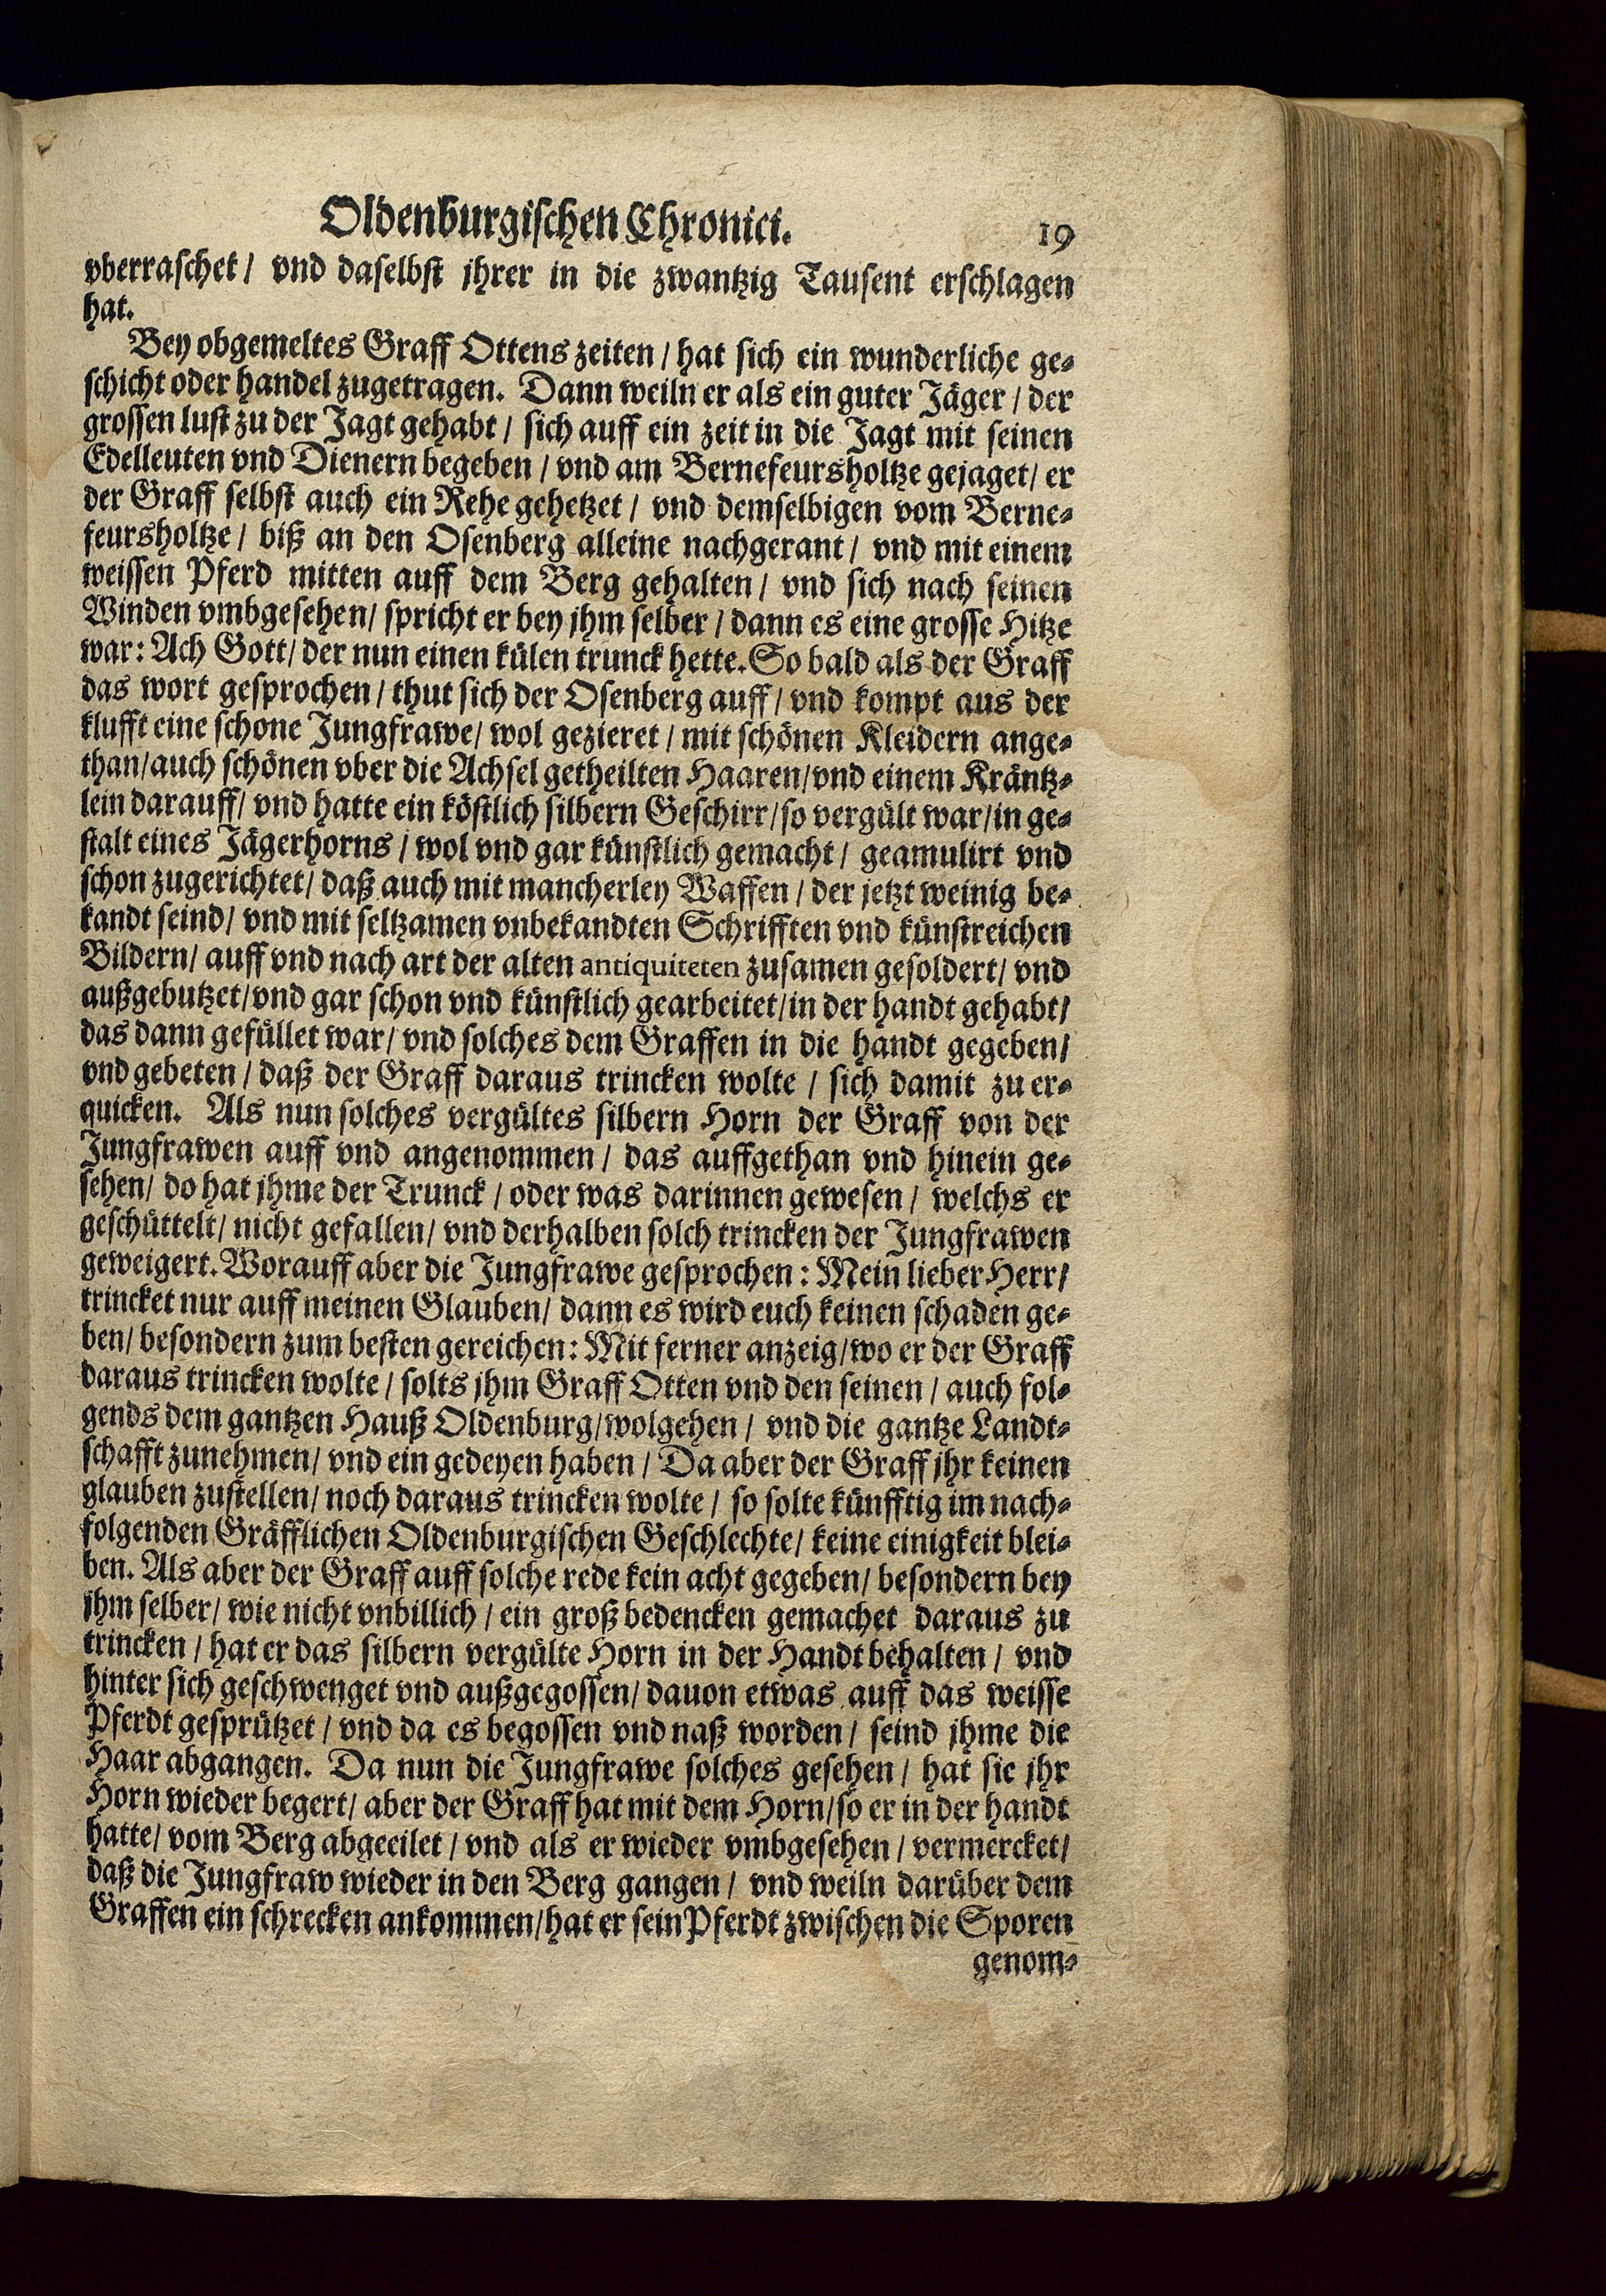 Oldenburgischen Chronici. 19
vberraschet / vnd daselbst jhrer in die zwantzig Tausent erschlagen
hat.
Bey obgemeltes Graff Ottens zeiten / hat sich ein wunderliche ge-
schicht oder handel zugetragen. Dann weiln er als ein guter Jäger / der
grossen lust zu der Jagt gehabt / sich auff ein zeit in die Jagt mit seinen
Edelleuten vnd Dienern begeben / vnd am Bernefeursholtze gejaget / er
der Graff selbst auch ein Rehe gehetzet / vnd demselbigen vom Berne-
feursholtze / biß an den Osenberg alleine nachgerant / vnd mit einem
weissen Pferd mitten auff dem Berg gehalten / vnd sich nach seinen
Winden vmbgesehen / spricht er bey jhm selber / dann es eine grosse Hitze
war: Ach Gott / der nun einen külen trunck hette. So bald als der Graff
das wort gesprochen / thut sich der Osenberg auff / vnd kompt aus der
klufft eine schone Jungfrawe / wol gezieret / mit schönen Kleidern ange-
than / auch schönen vber die Achsel getheilten Haaren / vnd einem Kräntz-
lein darauff / vnd hatte ein köstlich silbern Geschirr / so vergült war / in ge-
stalt eines Jägerhorns / wol vnd gar künstlich gemacht / geamulirt vnd
schon zugerichtet / daß auch mit mancherley Waffen / der jetzt weinig be-
kandt seind / vnd mit seltzamen vnbekandten Schrifften vnd künstreichen
Bildern / auff vnd nach art der alten antiquiteten zusamen gesoldert / vnd
außgebutzet / vnd gar schon vnd künstlich gearbeitet / in der handt gehabt /
das dann gefüllet war / vnd solches dem Graffen in die handt gegeben /
vnd gebeten / daß der Graff daraus trincken wolte / sich damit zu er-
quicken. Als nun solches vergültes silbern Horn der Graff von der
Jungfrawen auff vnd angenommen / das auffgethan vnd hinein ge-
sehen / do hat jhme der Trunck / oder was darinnen gewesen / welchs er
geschüttelt / nicht gefallen / vnd derhalben solch trincken der Jungfrawen
geweigert. Worauff aber die Jungfrawe gesprochen: Mein lieber Herr /
trincket nur auff meinen Glauben / dann es wird euch keinen schaden ge-
ben / besondern zum besten gereichen: Mit ferner anzeig / wo er der Graff
daraus trincken wolte / solts jhm Graff Otten vnd den seinen / auch fol-
gends dem gantzen Hauß Oldenburg / wolgehen / vnd die gantze Landt-
schafft zunehmen / vnd ein gedeyen haben / Da aber der Graff jhr keinen
glauben zustellen / noch daraus trincken wolte / so solte künfftig im nach-
folgenden Gräfflichen Oldenburgischen Geschlechte / keine einigkeit blei-
ben. Als aber der Graff auff solche rede kein acht gegeben / besondern bey
jhm selber / wie nicht vnbillich / ein groß bedencken gemachet daraus zu
trincken / hat er das silbern vergülte Horn in der Handt behalten / vnd
hinter sich geschwenget vnd außgegossen / dauon etwas auff das weisse
Pferdt gesprützet / vnd da es begossen vnd naß worden / seind jhme die
Haar abgangen. Da nun die Jungfrawe solches gesehen / hat sie jhr
Horn wieder begert / aber der Graff hat mit dem Horn / so er in der handt
hatte / vom Berg abgeeilet / vnd als er wieder vmbgesehen / vermercket /
daß die Jungfraw wieder in den Berg gangen / vnd weiln darüber dem
Graffen ein schrecken ankommen / hat er sein Pferdt zwischen die Sporen
genom-